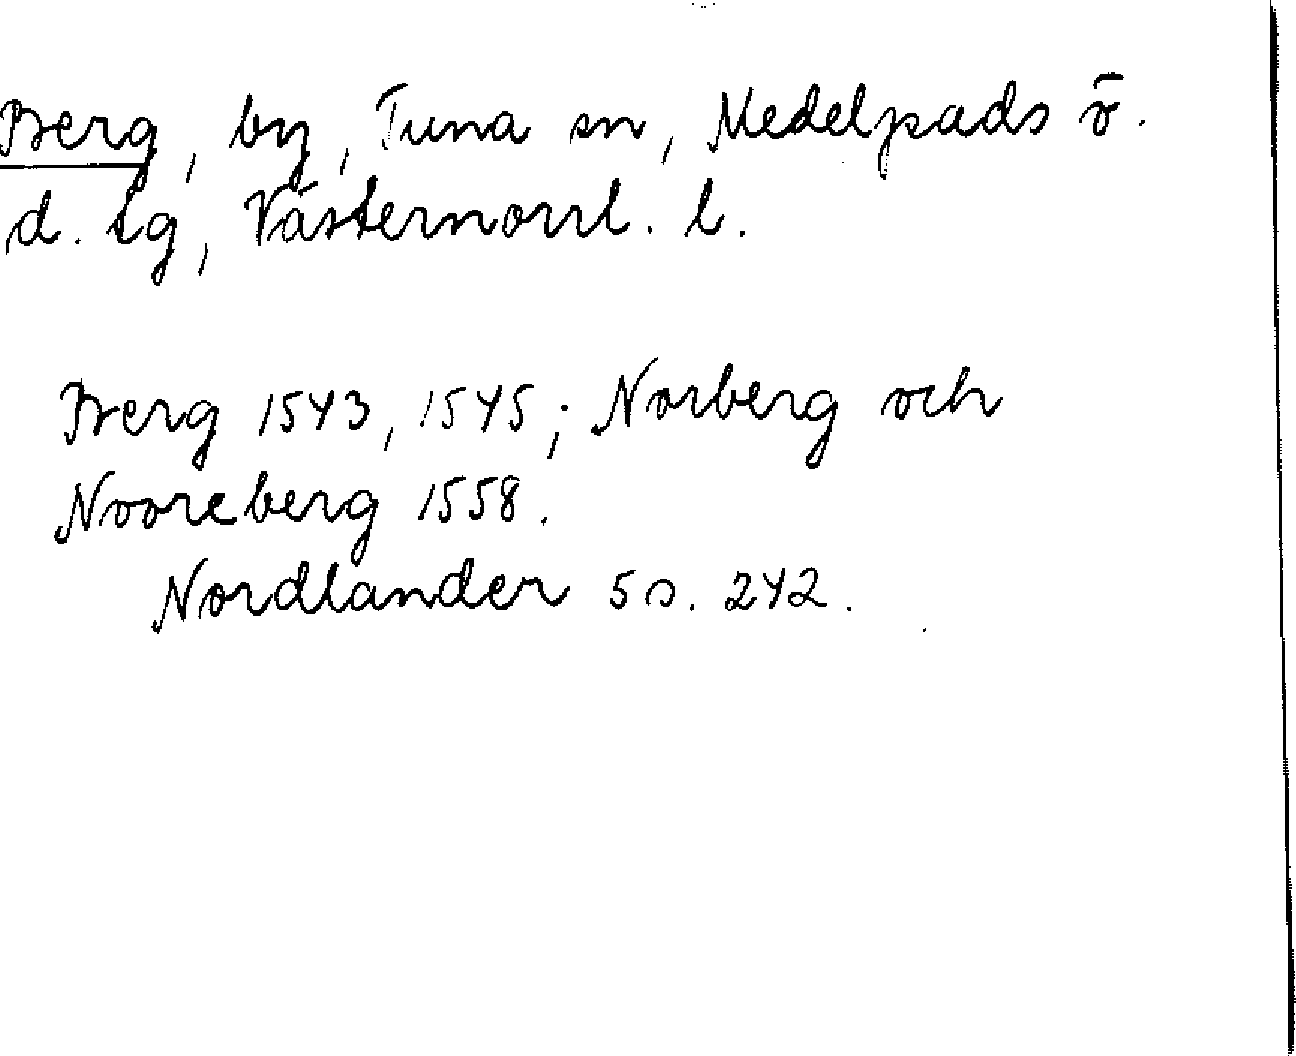 Berg, by, Tuna sn, Medelpads ö.
d. tg, Västernorrl. l.
Berg 1543, 1545; Norberg och
Nooreberg 1558.
Nordlander 5 s. 242.